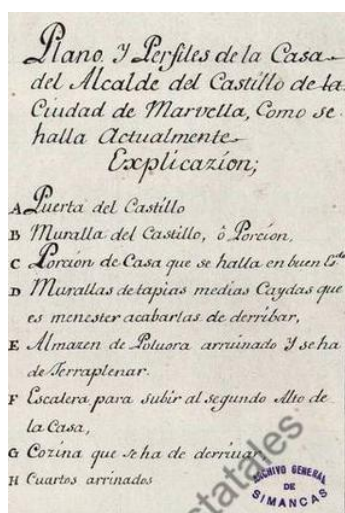 Plano. Y Perfiles de la Casa
del Alcalde del Castillo de la
Ciudad de Marvella, Como se
halla Actualmente
Explicazion;
A Puerta del Castillo
B Muralla del Castillo, ò Porcion,
C Porcion de Casa que se halla en buen Esdo
D Murallas de tapias medias Caydas que
es menester acabarlas de derribar,
E Almazen de Poluora arruinado Y se ha
de Terraplenar.
F Escalera para subir al segundo Alto de
la Casa,
G Cozina que se ha de derriuar,
H Cuartos arrinados
ARCHIVO GENERAL
DE
SIMANCAS
statales